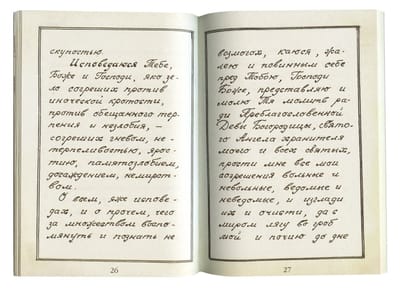 скупостью.
Исповедаюся Тебе,
Боже и Господи, яко зе-
ло согреших против
иноческой кротости,
против обещанного тер-
пения и незлобия, -
согреших гневом, не -
терпеливостью, ярос -
тию, памятозлобием,
досаждением, немиротст-
вом.
О всем, яже испове-
дах, и о прочем, чего
за множеством воспо-
мянуть и познать не
26
возмогох, каюся, жа-
лею и повинным себе
пред Тобою, Господи
Боже, представляю и
молю Тя молить ра-
ди Преблагословенной
Девы Богородицы, свято-
го Ангела хранителя
моего и всех святых,
прости мне все мои
согрешения вольные и
невольные, ведомые и
неведомые, и изглади
их и очисти, да с
миром лягу во гроб
мой и почию до дне
27